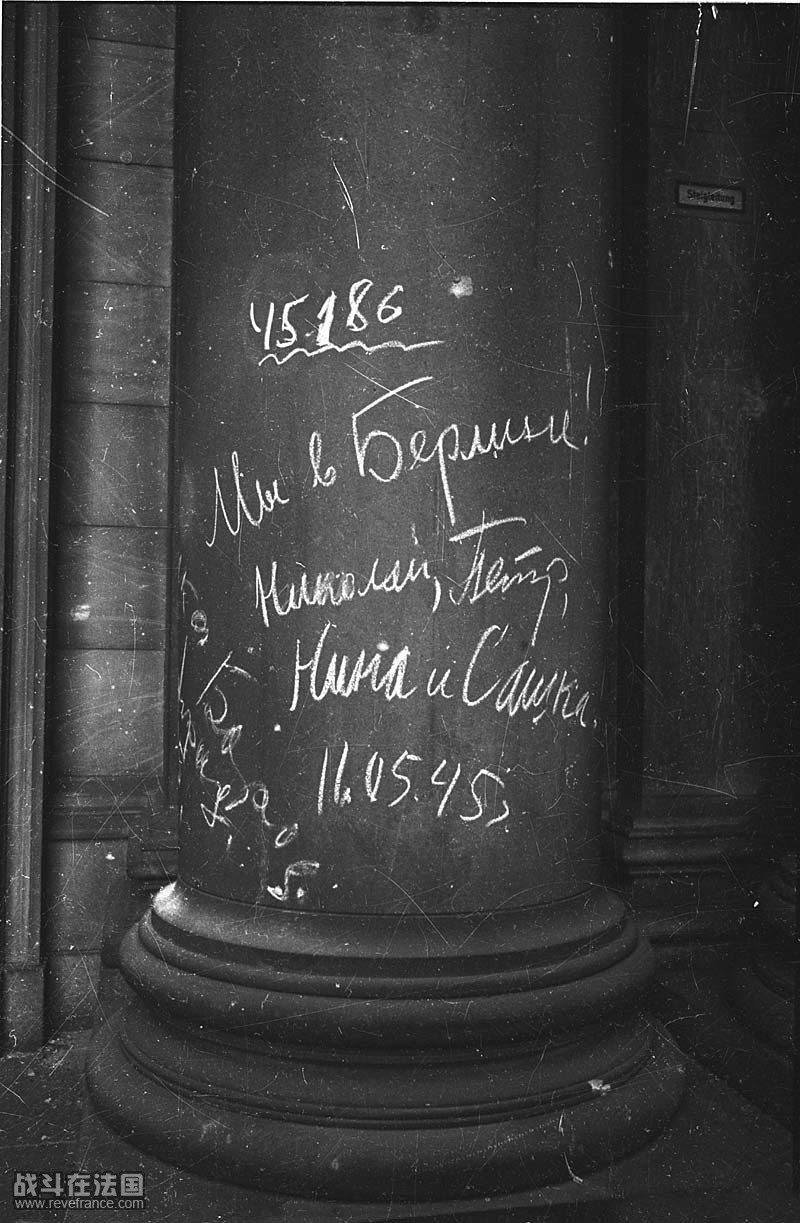 Steigleitung
45.186
Мы в Берлине!
Николай, Петр,
Нина и Сашка.
11.05.45
战斗在法国
www.revefrance.com